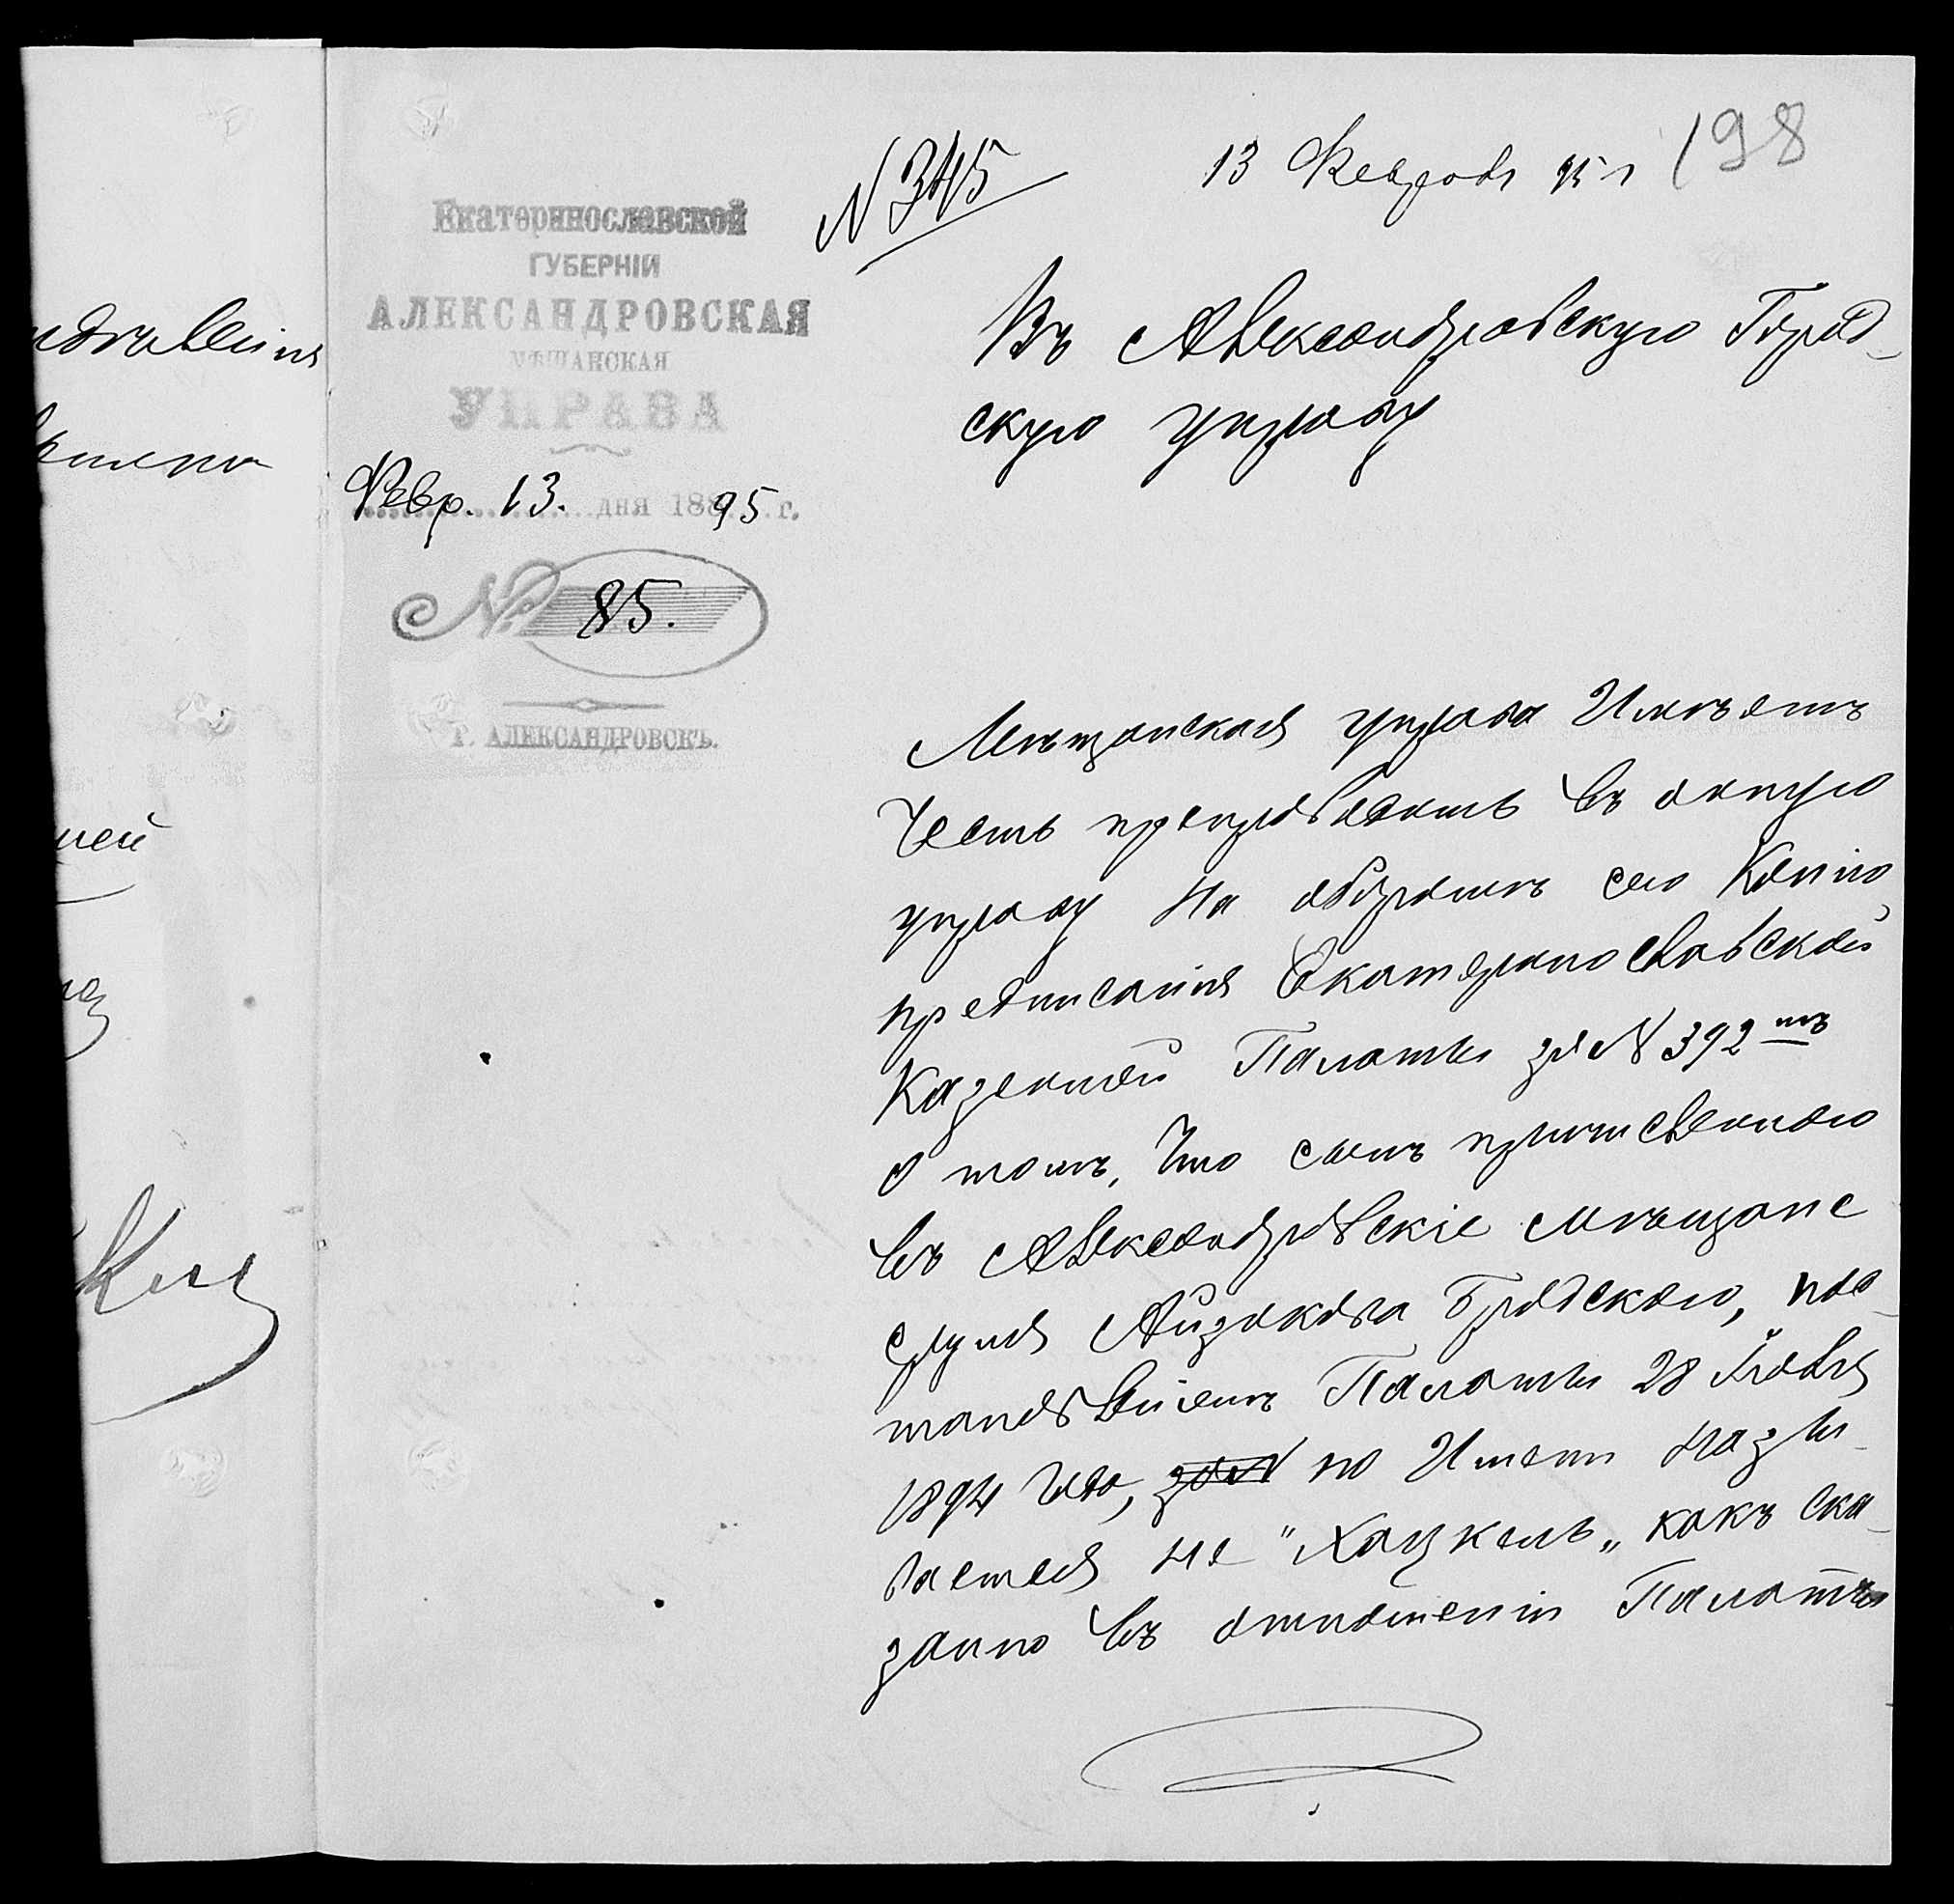 198
N 345
13 Февраля 95 г
Екатеринославской
ГУБЕРНІИ
АЛЕКСАНДРОВСКАЯ
МѢЩАНСКАЯ
УПРАВА
Февр. 13. дня 188 95 г.
№ 85.
Г. АЛЕКСАНДРОВСКЪ.
Въ Александровскую Город-
скую управу
Мѣщанская управа Имѣетъ
Честь препроводить въ оную
управу на оборотѣ сего Копію
предписанія Екатеринославской
Казенной Палаты за N 392
о томъ, Что сынъ причисленнаго
въ Александровскіе мѣщане
Айзикова Бродскаго, пос-
тановленіемъ Палаты 28 Іюля
1894 года, по Имени назы-
вается не "Хацкель" какъ ска-
занно въ отношеніи Палаты
ней